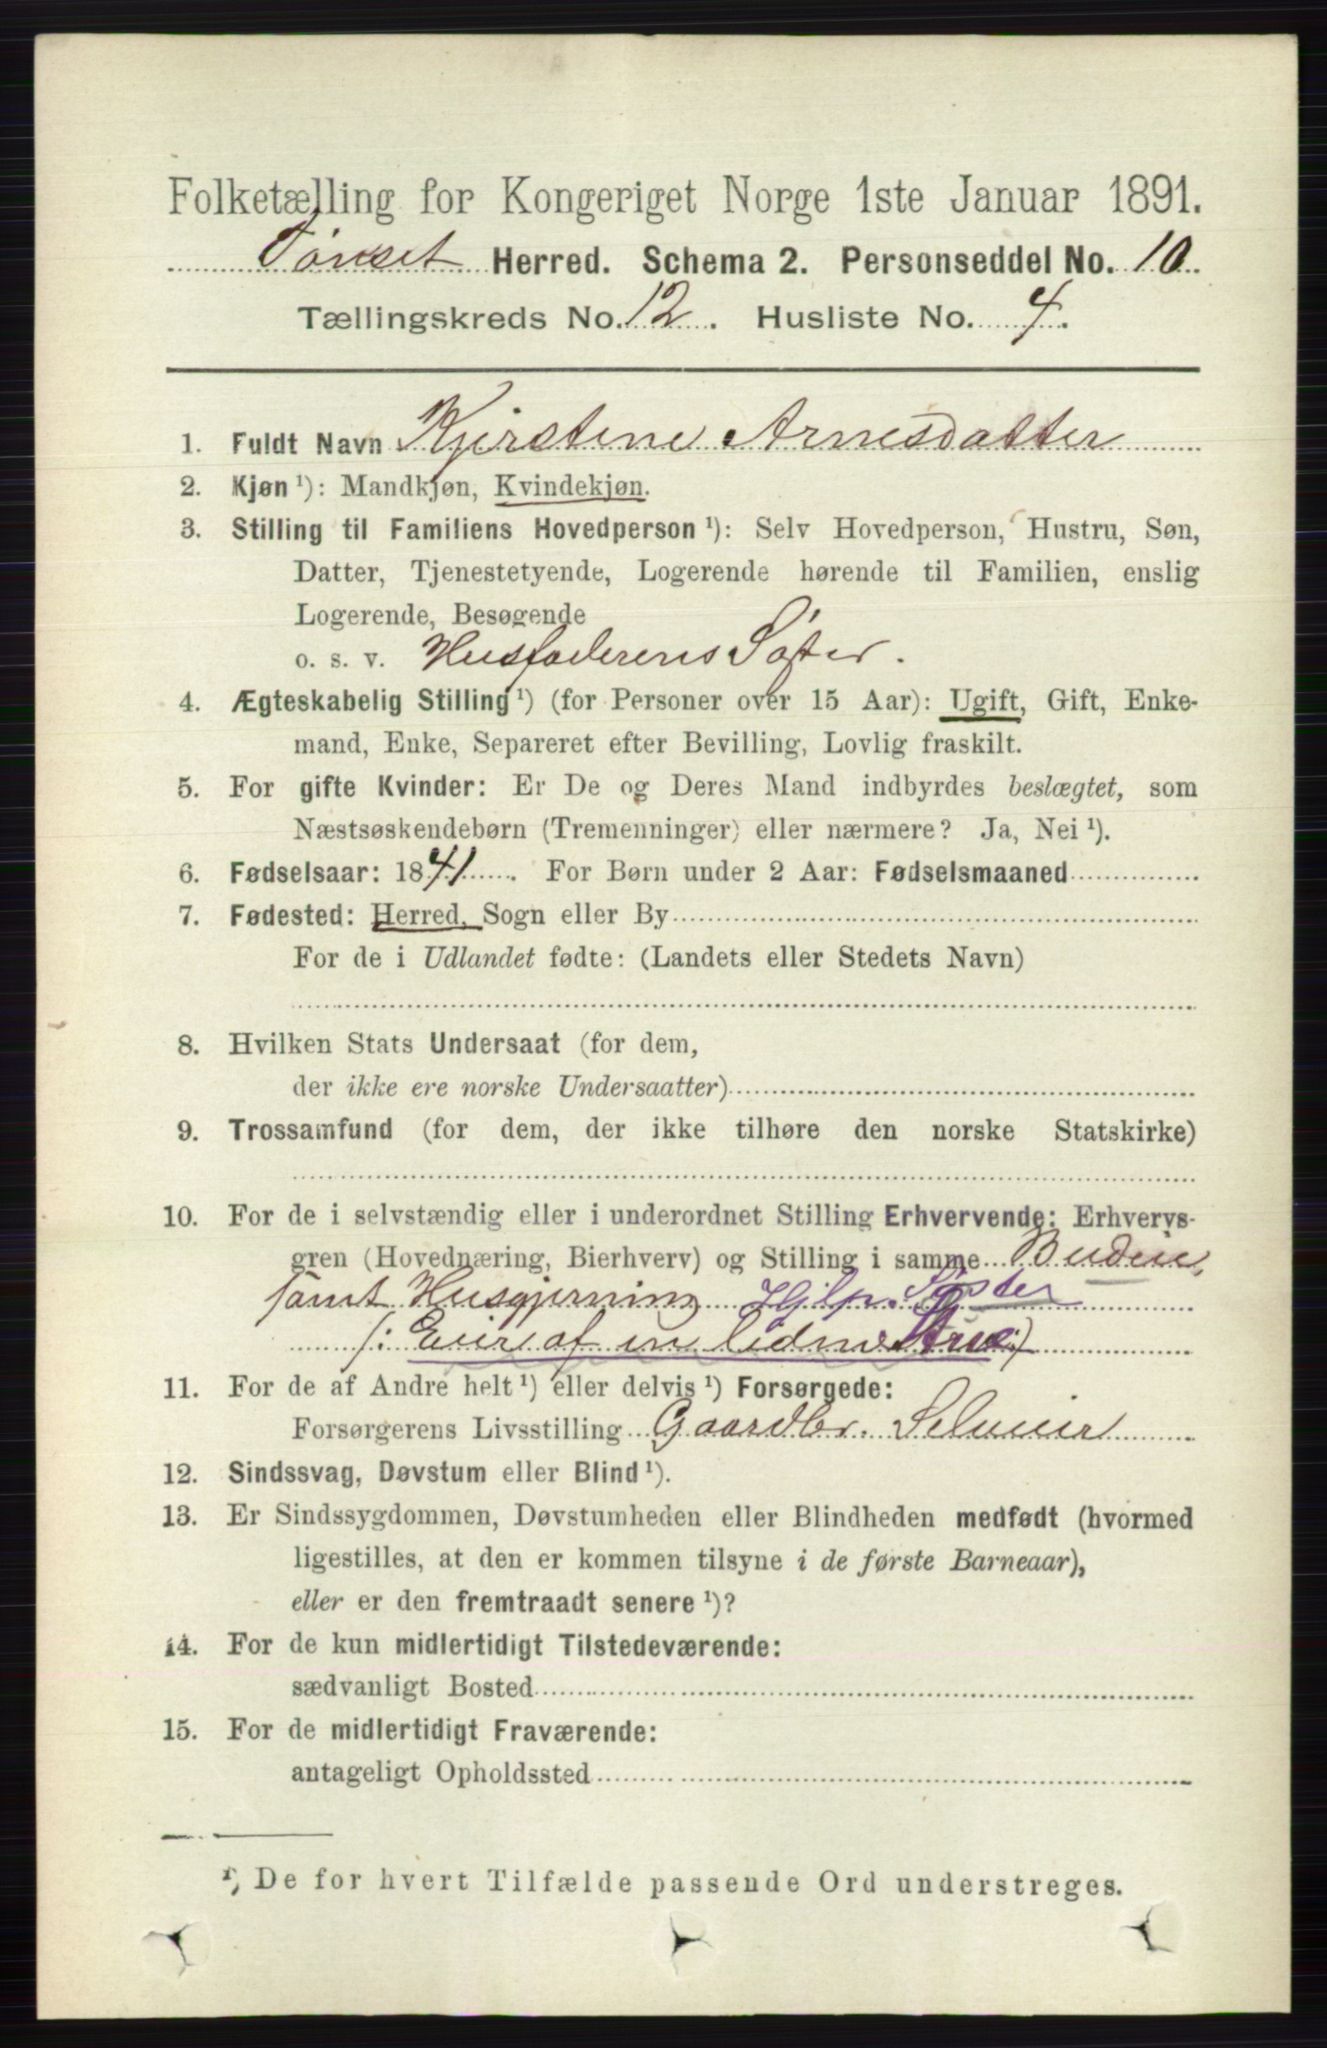 Folketælling for Kongeriget Norge 1ste Januar 1891.
Tønset Herred. Schema 2. Personseddel No. 10
Tællingskreds No. 12. Husliste No. 4.
1. Fuldt Navn Kjerstine Arnesdatter
2. Kjøn ¹): Mandkjøn, Kvindekjøn.
3. Stilling til Familiens Hovedperson ¹): Selv Hovedperson, Hustru, Søn,
Datter, Tjenestetyende, Logerende hørende til Familien, enslig
Logerende, Besøgende
o. s. v. Husfaderens Søster.
4. Ægteskabelig Stilling ¹) (for Personer over 15 Aar): Ugift, Gift, Enke-
mand, Enke, Separeret efter Bevilling, Lovlig fraskilt.
5. For gifte Kvinder: Er De og Deres Mand indbyrdes beslægtet, som
Næstsøskendebørn (Tremenninger) eller nærmere? Ja, Nei ¹).
6. Fødselsaar: 1841. For Børn under 2 Aar: Fødselsmaaned
7. Fødested: Herred, Sogn eller By
For de i Udlandet fødte: (Landets eller Stedets Navn)
8. Hvilken Stats Undersaat (for dem,
der ikke ere norske Undersaatter)
9. Trossamfund (for dem, der ikke tilhøre den norske Statskirke)
10. For de i selvstændig eller i underordnet Stilling Erhvervende: Erhvervs-
gren (Hovednæring, Bierhverv) og Stilling i samme Budeie,
samt Husgjerning Hjlp. Søster
/: Eier af en liden Arv :/
11. For de af Andre helt ¹) eller delvis ¹) Forsørgede:
Forsørgerens Livsstilling Gaardbr. Selveier
12. Sindssvag, Døvstum eller Blind ¹).
13. Er Sindssygdommen, Døvstumheden eller Blindheden medfødt (hvormed
ligestilles, at den er kommen tilsyne i de første Barneaar),
eller er den fremtraadt senere ¹)?
14. For de kun midlertidigt Tilstedeværende:
sædvanligt Bosted
15. For de midlertidigt Fraværende:
antageligt Opholdssted
¹) De for hvert Tilfælde passende Ord understreges.